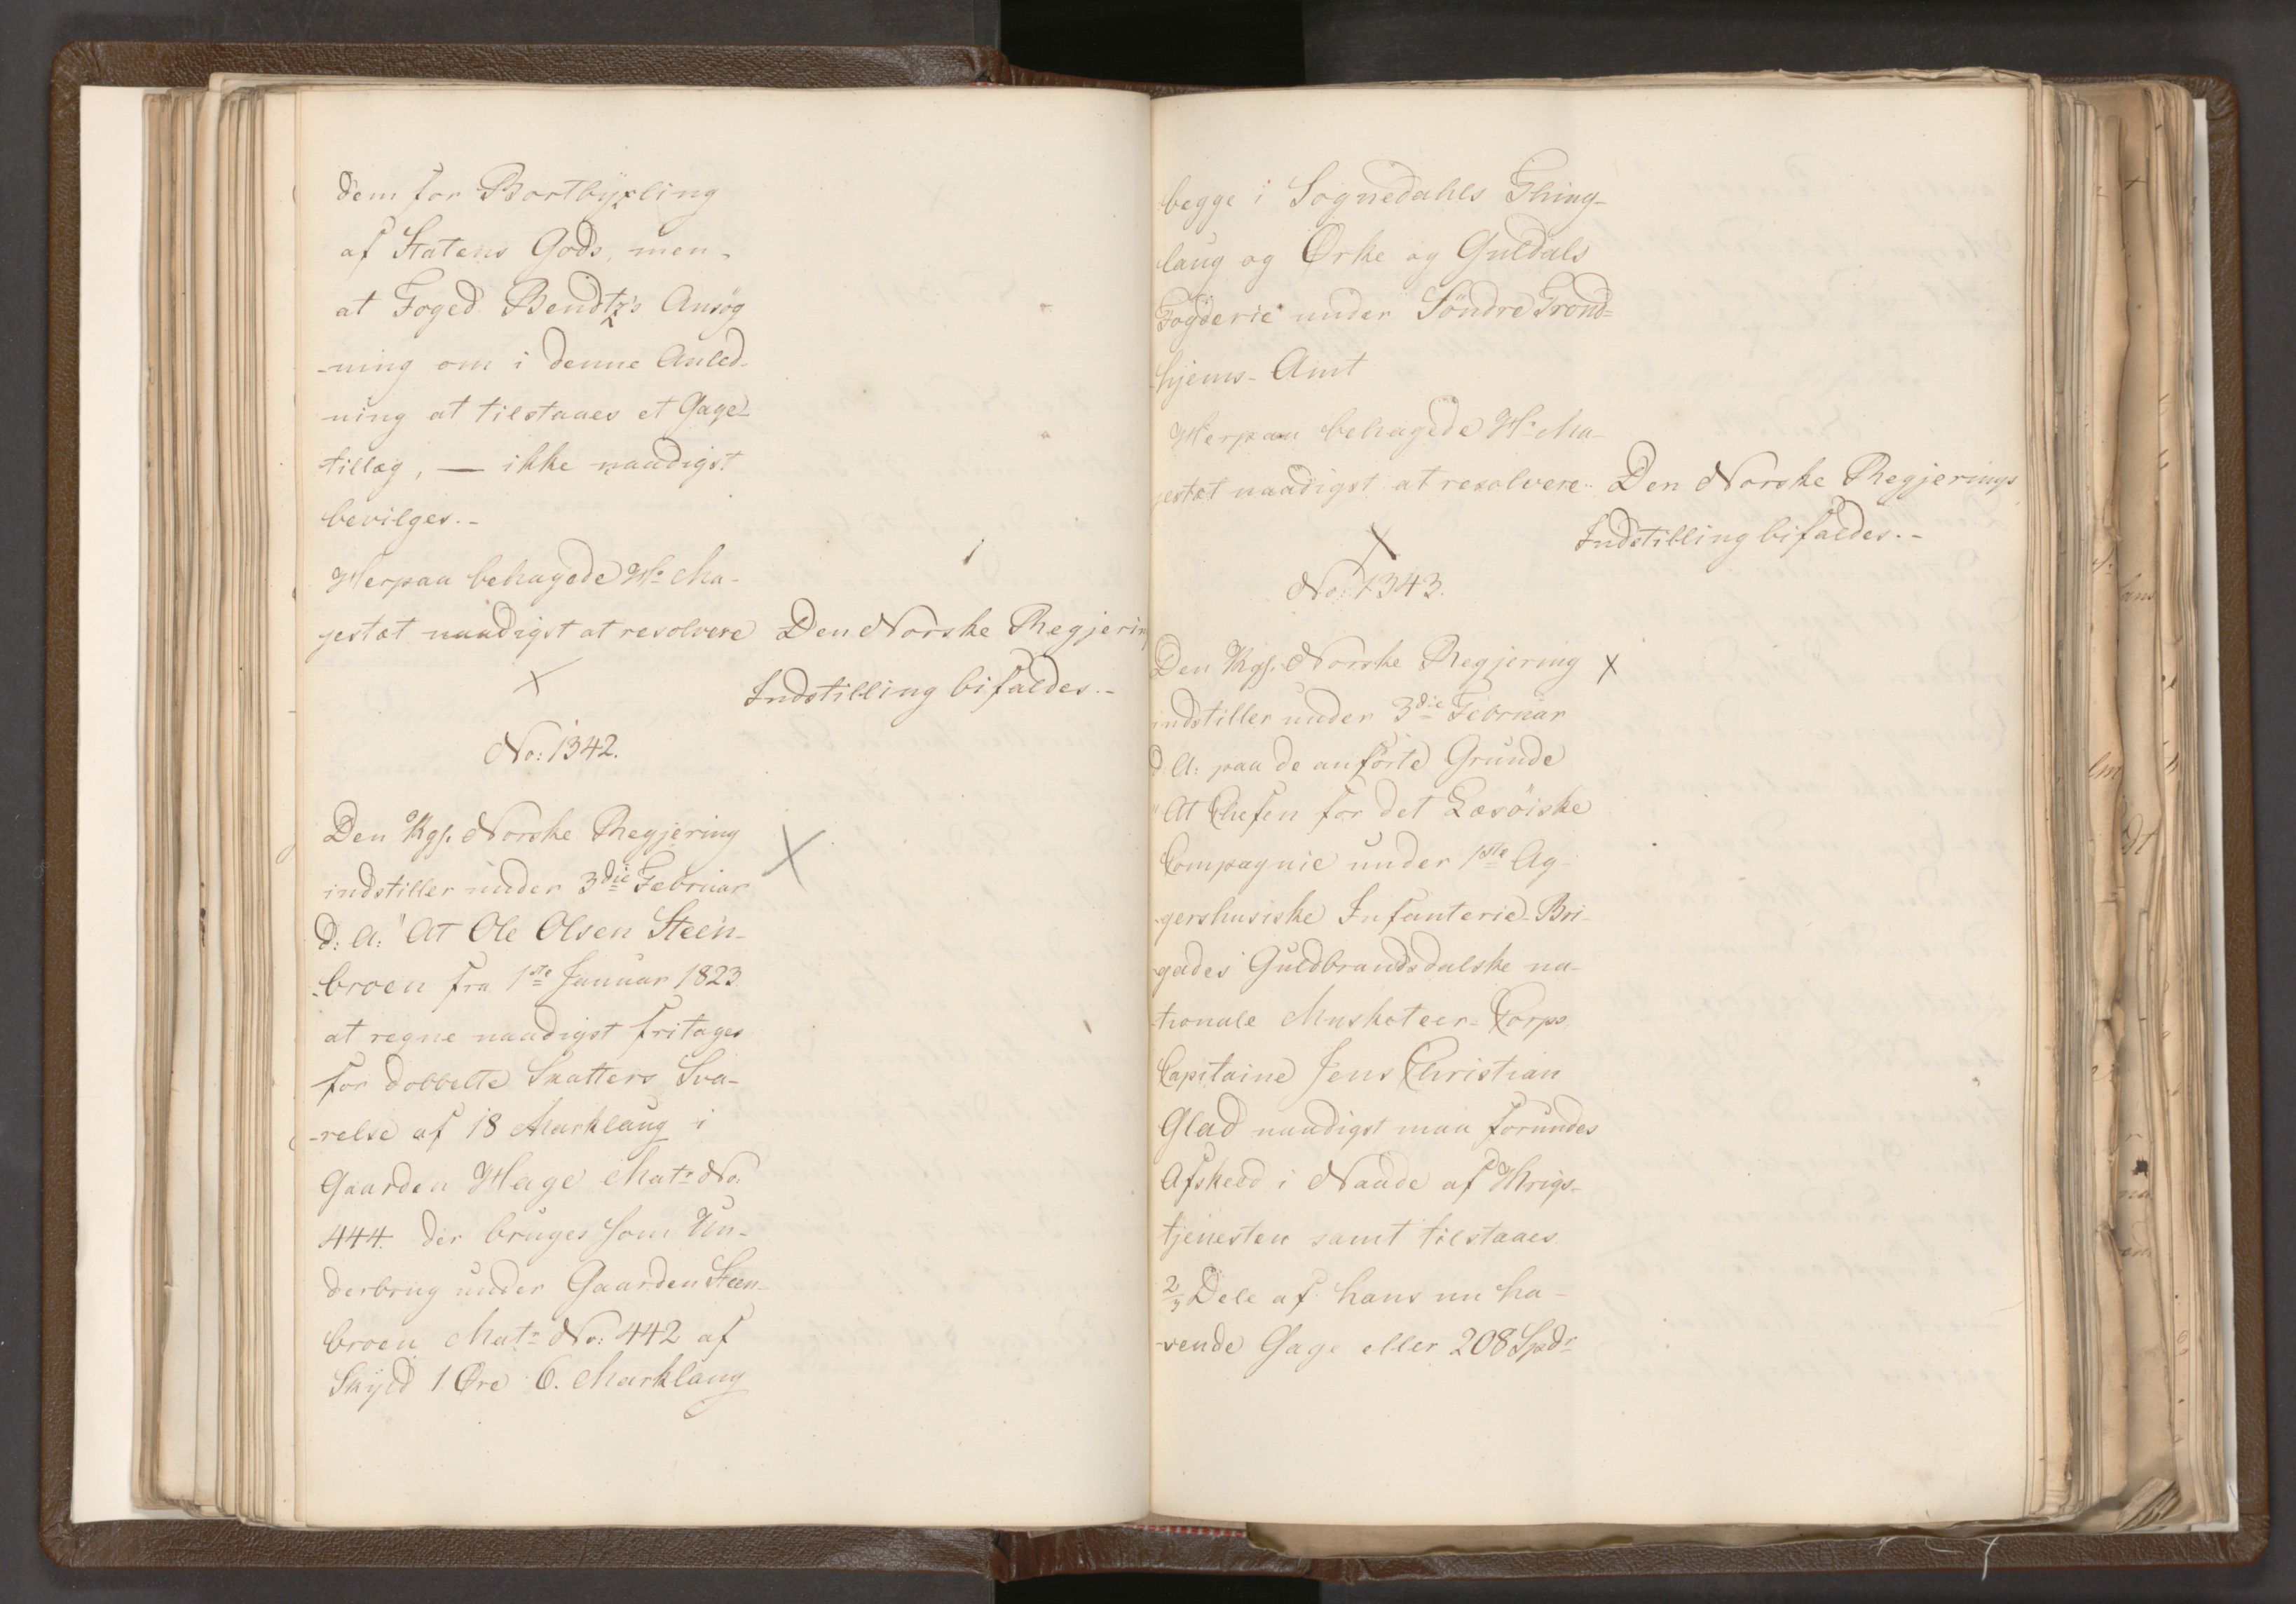 dem for Bortbyxling
af Statens Gods, men-
at Foged Bendtz's Ansøg
-ning om i denne Anled-
ning at tilstaaes et Gage-
tillæg, — ikke naadigst
bevilges.-
Herpaa behagede Hs Ma-
jestæt naadigst at resolvere
Den Norske Regjering
Indstilling bifaldes.-
No: 1342.
Den Kgl. Norske Regjering
indstiller under 3die Februar
d: A: "At Ole Olsen Steen-
-broen fra 1ste Januar 1823
at regne naadigst fritages
for dobbelte Skatters Sva-
-relse af 18 Marklaug i
Gaarden Hage Matr No:
444. der bruges som Un-
derbrug under Gaarden Steen-
broen Matr No: 442 af
Skyld 1 Øre 6. Marklaug
begge i Sognedahls Thing-
laug og Ørke og Guldals
Fogderie under Söndre Trond=
hjems- Amt
Herpaa behagede Hs Ma-
jestæt naadigst at resolvere.
Den Norske Regjerings
Indstilling bifaldes.-
No: 1343.
Den Kgl. Norske Regjering
indstiller under 3die Februar
d: A: paa de anførte Grunde
"At Chefen for det Læsöiske
Compagnie under 1ste Ag-
-gershusiske Infanterie-Bri-
-gades Guldbrandsdalske na-
-tionale Musketeer-Corps
Capitaine Jens Christian
Glad naadigst maa forundes
Afskeed i Naade af Krigs-
tjenesten samt tilstaaes
2/3 Dele af hans nu ha-
-vende Gage eller 208 Spdr